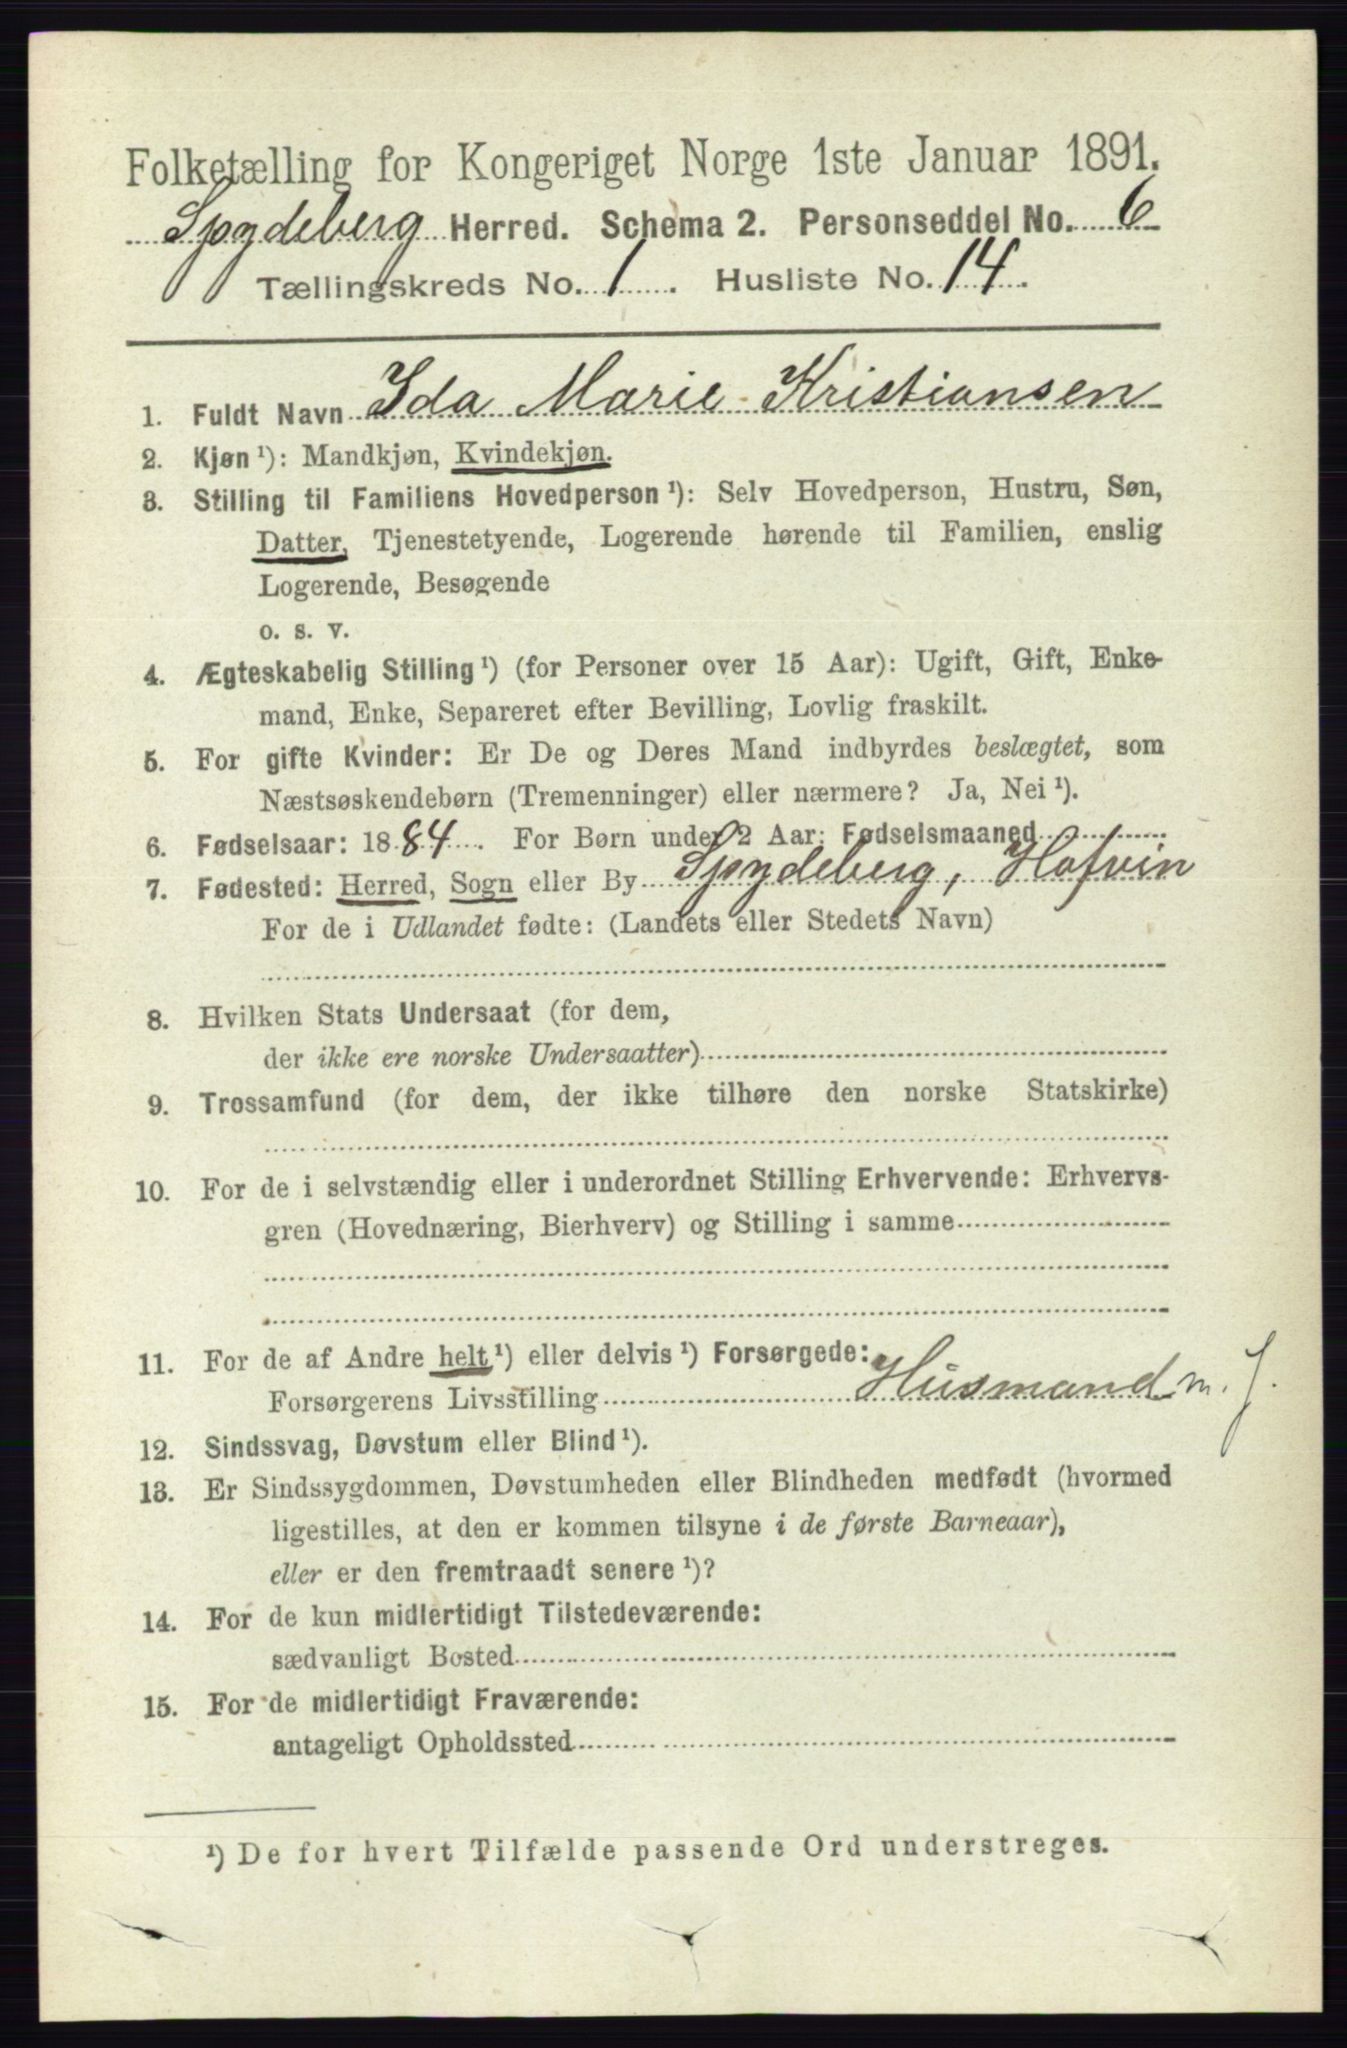 Folketælling for Kongeriget Norge 1ste Januar 1891.
Spydeberg Herred. Schema 2. Personseddel No. 6
Tællingskreds No. 1. Husliste No. 14.
1. Fuldt Navn Ida Marie Kristiansen
2. Kjøn¹): Mandkjøn, Kvindekjøn.
3. Stilling til Familiens Hovedperson¹): Selv Hovedperson, Hustru, Søn,
Datter, Tjenestetyende, Logerende hørende til Familien, enslig
Logerende, Besøgende
o. s. v.
4. Ægteskabelig Stilling¹) (for Personer over 15 Aar): Ugift, Gift, Enke-
mand, Enke, Separeret efter Bevilling, Lovlig fraskilt.
5. For gifte Kvinder: Er De og Deres Mand indbyrdes beslægtet, som
Næstsøskendebørn (Tremenninger) eller nærmere? Ja, Nei¹).
6. Fødselsaar: 1884. For Børn under 2 Aar: Fødselsmaaned
7. Fødested: Herred, Sogn eller By Spydeberg, Hofvin
For de i Udlandet fødte: (Landets eller Stedets Navn)
8. Hvilken Stats Undersaat (for dem,
der ikke ere norske Undersaatter)
9. Trossamfund (for dem, der ikke tilhøre den norske Statskirke)
10. For de i selvstændig eller i underordnet Stilling Erhvervende: Erhvervs-
gren (Hovednæring, Bierhverv) og Stilling i samme
11. For de af Andre helt¹) eller delvis¹) Forsørgede:
Forsørgerens Livsstilling Husmand m. J.
12. Sindssvag, Døvstum eller Blind¹).
13. Er Sindssygdommen, Døvstumheden eller Blindheden medfødt (hvormed
ligestilles, at den er kommen tilsyne i de første Barneaar),
eller er den fremtraadt senere¹)?
14. For de kun midlertidigt Tilstedeværende:
sædvanligt Bosted
15. For de midlertidigt Fraværende:
antageligt Opholdssted
¹) De for hvert Tilfælde passende Ord understreges.